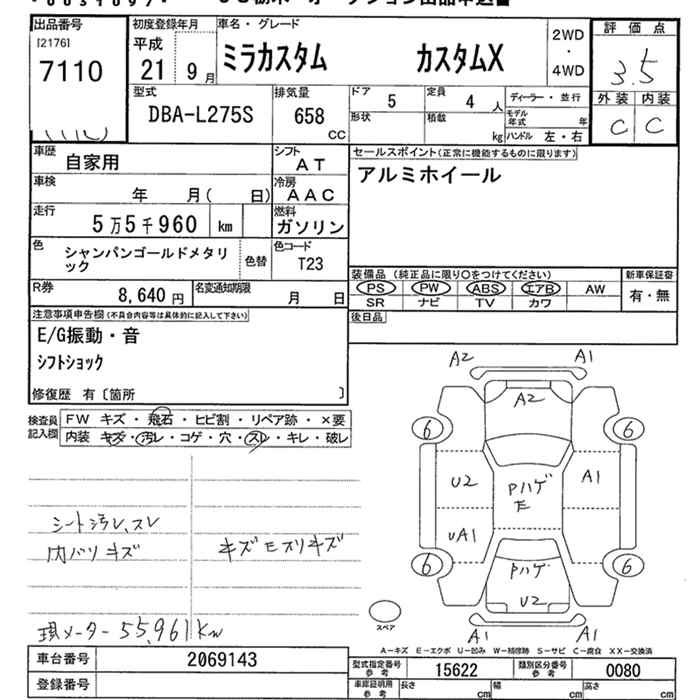 出品番号
[2176]
7110
初度登録年月
平成
21 9月
車名・グレード
ミラカスタム カスタムX
2WD
・
4WD
評価点
3.5
外装 内装
C C
型式
DBA-L275S
排気量
658
CC
ドア
5
定員
4 人
形状
積載
kg
ディーラー・並行
モデル年式 年
ハンドル 左・右
車歴
自家用
シフト
AT
車検
年 月( 日)
冷房
AAC
走行
5万5千960 km
燃料
ガソリン
色
シャンパンゴールドメタリ
ック
色替
色コード
T23
R券
8,640 円
名変通知期限
月 日
セールスポイント(正常に機能するものに限ります)
アルミホイール
装備品 (純正品に限り○をつけてください)
PS PW ABS エアB AW
SR ナビ TV カワ
新車保証書
有・無
後日品
注意事項申告欄(不具合内容等は具体的に記入して下さい)
E/G振動・音
シフトショック
修復歴 有〔箇所 〕
検査員
記入欄
FW キズ・飛石・ヒビ割・リペア跡・×要
内装 キズ・汚レ・コゲ・穴・スレ・キレ・破レ
シート汚レ、スレ
内バリキズ
キズモスリキズ
現メーター55,961km
A2 A1
A2
6 6
U2
Pハゲ
E
A1
UA1
6 6
Pハゲ
U2
A1 A1
スペア
A-キズ E-エクボ U-凹み W-補修跡 S-サビ C-腐食 XX-交換済
車台番号
2069143
登録番号
型式指定番号
参考
15622
類別区分番号
参考
0080
車庫証明用
参考
長さ cm
幅 cm
高さ cm